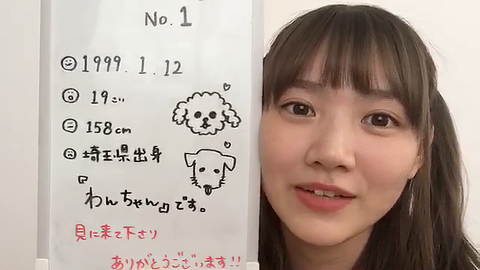 No. 1
1999. 1. 12
19さい
158cm
埼玉県出身
『わんちゃん』です。
見に来て下さり
ありがとうございます!!